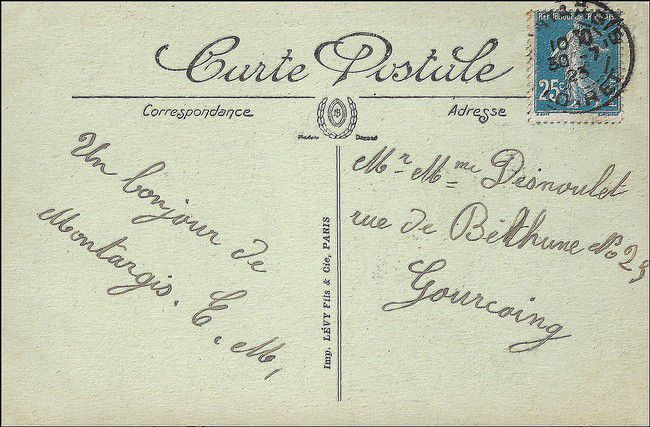 Carte Postale
Correspondance
Adresse
Modèle Déposé
25c
Un bonjour de
Montargis. E. M,
Mr Mme Desnoulet
rue de Béthune No 25
Tourcoing
Imp. LÉVY Fils & Cie, PARIS